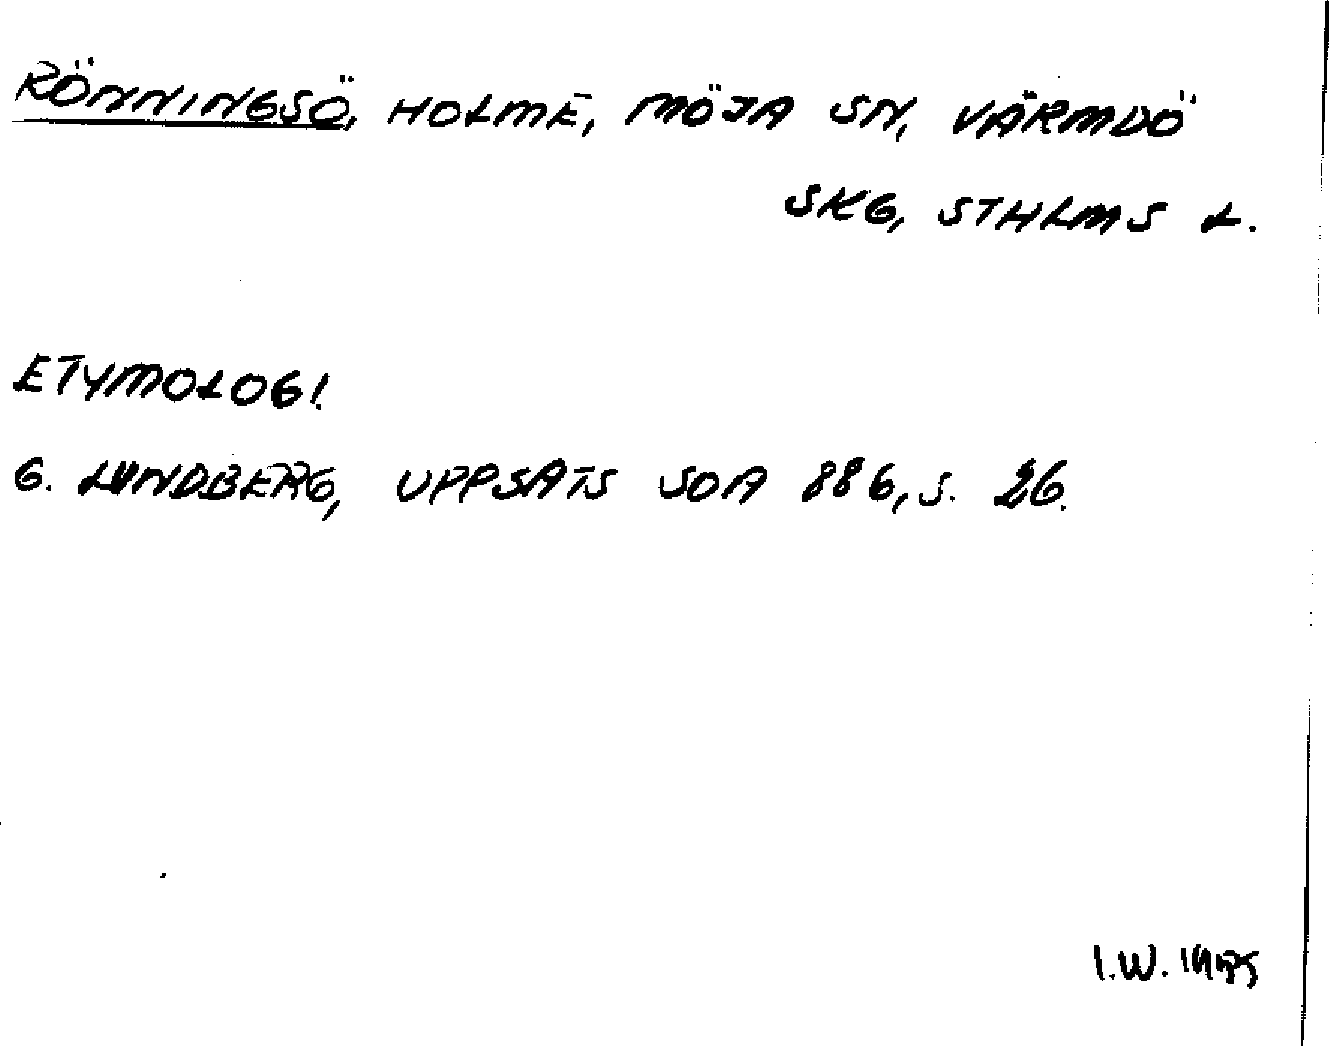 RÖNNINGSÖ, HOLME, MÖJA SN, VÄRMDÖ
SKG, STHLMS L.
ETYMOLOGI.
G. LUNDBERG, UPPSATS SOA 886, S. 26.
I.W.